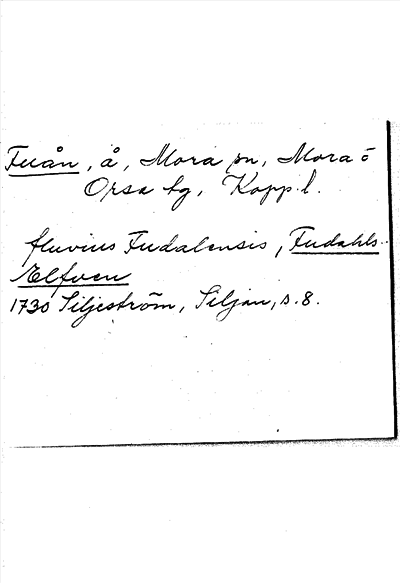 Fuån, å, Mora sn, Mora o
Orsa tg, Kopp. l.
fluvius Fudalensis, Fudahls-
Elfven
1730 Siljeström, Siljan, s. 8.